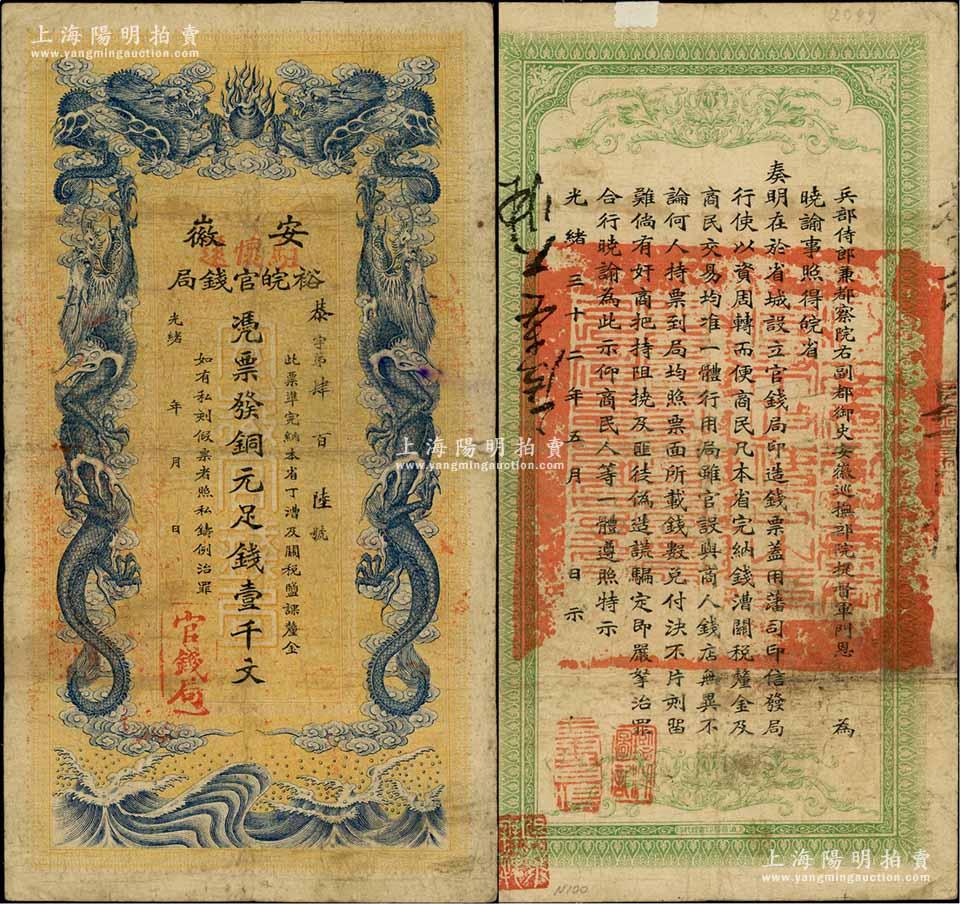 上海陽明拍賣
www.yangmingauction.com
安徽
裕皖官錢局
泰字第肆百陸號
此票準完納本省丁漕及關稅鹽課釐金
憑票發銅元足錢壹千文
如有私刻假票者照私鑄例治罪
光緒年月日
官錢局
2099
兵部侍郎兼都察院右副都御史安徽巡撫部院提督軍門恩為
曉諭事照得皖省
奏明在於省城設立官錢局印造錢票蓋用藩司印信發局
行使以資周轉而便商民凡本省完納錢漕關稅釐金及
商民交易均准一體行用局雖官設與商人錢店無異不
論何人持票到局均照票面所載錢數兌付決不片刻留
難倘有奸商把持阻撓及匪徒偽造謊騙定即嚴拏治罪
合行曉諭為此示仰商民人等一體遵照特示
光緒三十二年五月日示
上海陽明拍賣
www.yangmingauction.com
N100
上海陽明拍賣
www.yangmingauction.com